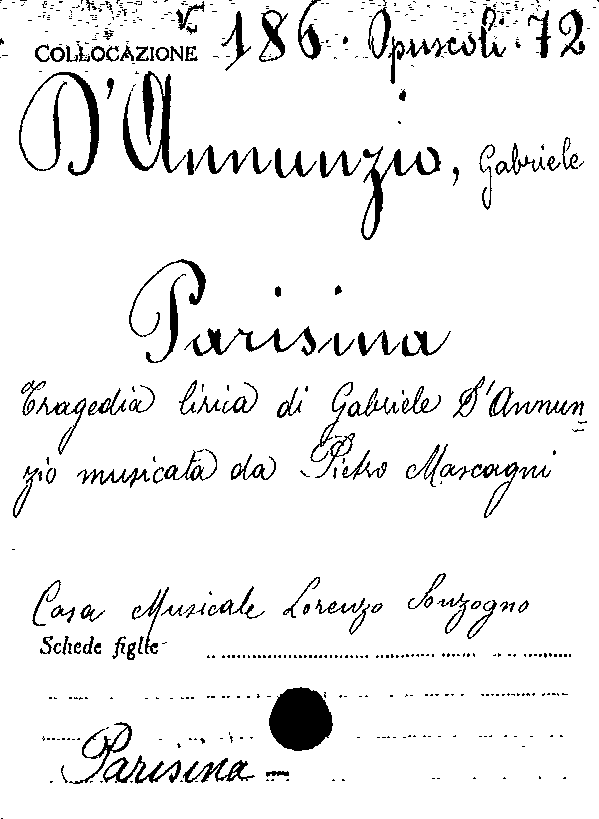 COLLOCAZIONE 186 · Opuscoli · 72
D'Annunzio, Gabriele
Parisina
Tragedia lirica di Gabriele D'Annun=
zio musicata da Pietro Mascagni
Casa Musicale Lorenzo Sonzogno
Schede figlie
Parisina –